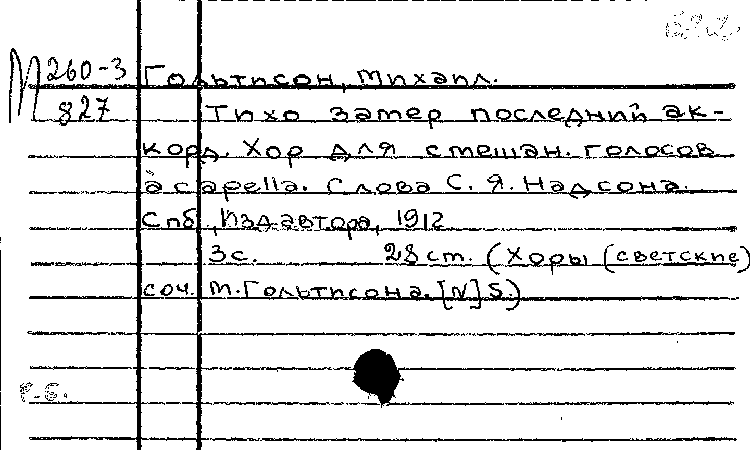 М 260-3 Гольтисон, Михаил.
827 Тихо замер последний ак-
корд. Хор для смешан. голосов
a capella. Слова С. Я. Надсона.
Спб., Изд. автора, 1912
3с. 28 cm. (Хоры (светские)
соч. М. Гольтисона. [N] 5.)